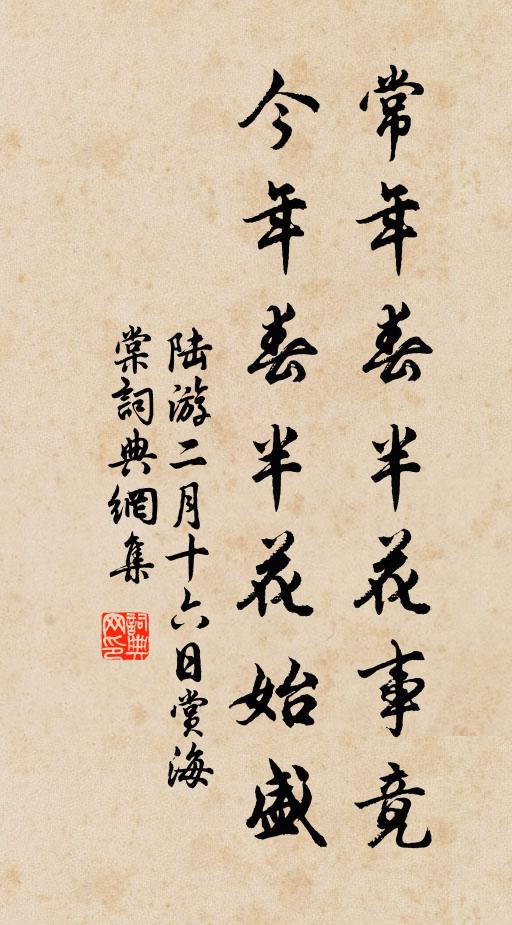 常年春半花事竟
今年春半花始盛
陆游二月十六日賞海
棠詞典網集
詞典网印